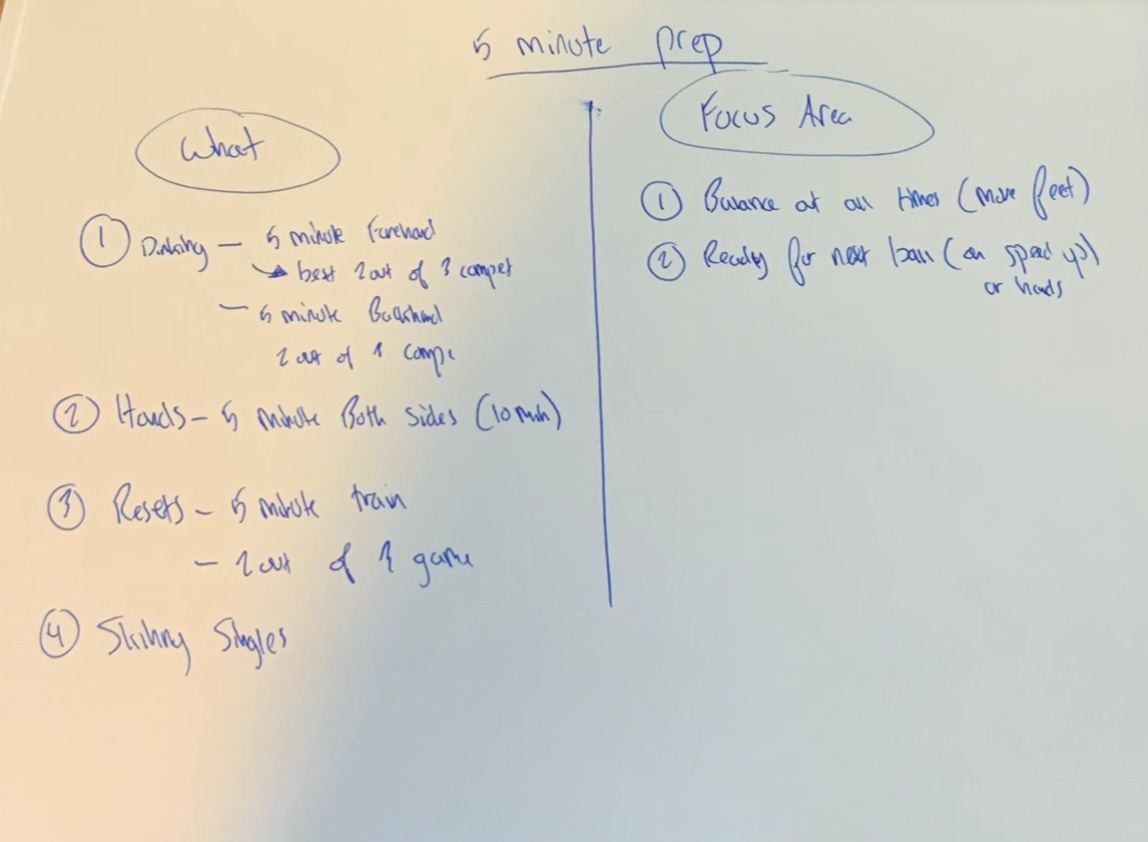 5 minute prep
What
① Dinking – 5 minute Forehand
↳ best 2 out of 3 compet
– 5 minute Backhand
2 out of 3 compe
② Hands – 5 minute Both sides (10 min)
③ Resets – 5 minute train
– 2 out of 3 game
④ Skinny Singles
Focus Area
① Balance at all times (move feet)
② Ready for next ball (on speed ups)
or hands